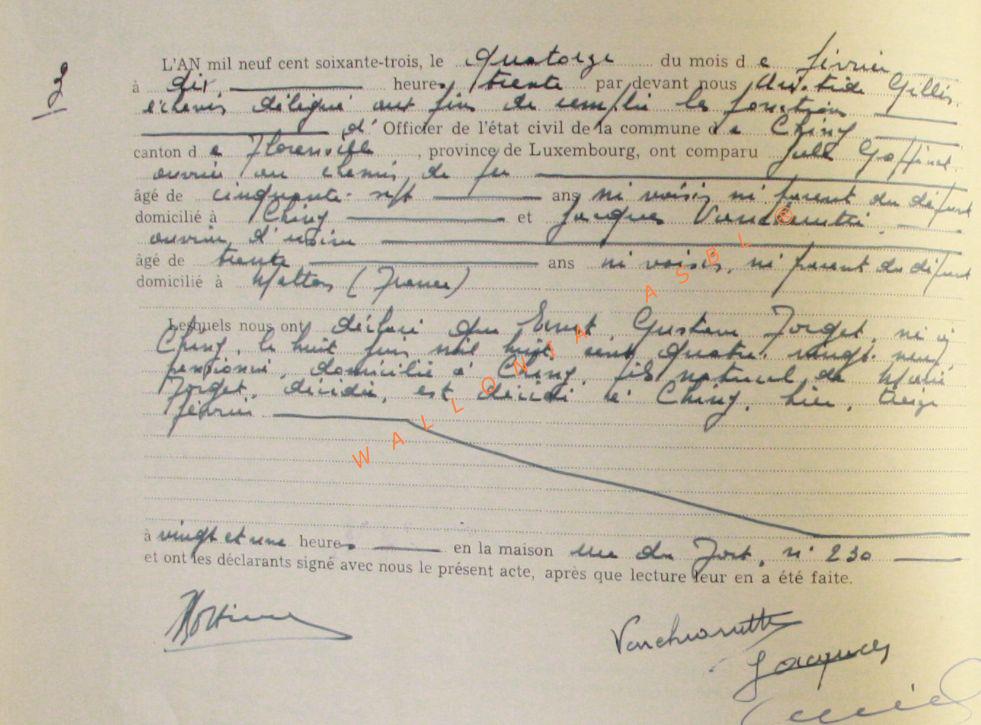 3
L'AN mil neuf cent soixante-trois, le quatorze du mois d e février
à dix, heures trente par devant nous Aristide Gillis
échevin délégué aux fins de remplir les fonctions
d' Officier de l'état civil de la commune d e Chiny
canton d e Florenville, province de Luxembourg, ont comparu Jules Goffinet
ouvrier au chemin de fer
âgé de cinquante-sept ans ni voisin ni parent du défunt
domicilié à Chiny et Jacques
ouvrier d'usine
âgé de trente ans ni voisin, ni parent du défunt
domicilié à (France)
Lesquels nous ont déclaré que Ernest Gustave Forget, né à
Chiny, le huit juin mil huit cent quatre-vingt-neuf
pensionné, domicilié à Chiny, fils naturel de Marie
Forget, décédée, est décédé à Chiny, hier, treize
février
à vingt et une heures en la maison rue du Fort, n° 230
et ont les déclarants signé avec nous le présent acte, après que lecture leur en a été faite.
Jacques
WALLONIA ASBL ®